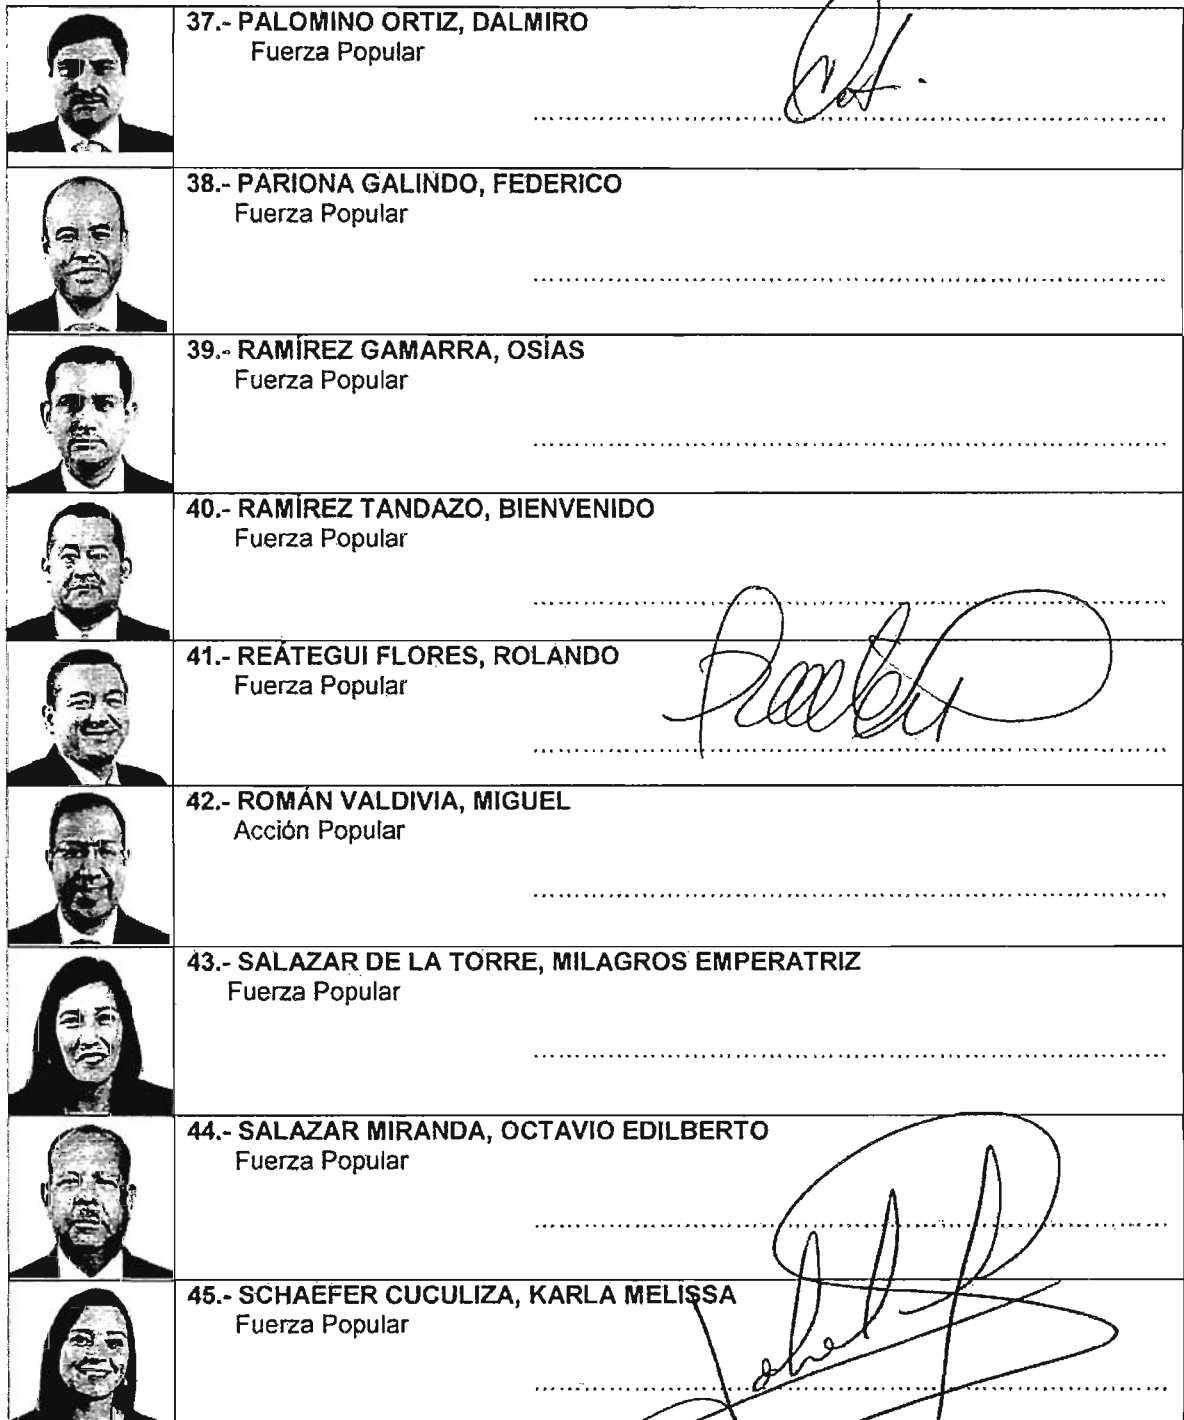 37.- PALOMINO ORTIZ, DALMIRO
Fuerza Popular
38.- PARIONA GALINDO, FEDERICO
Fuerza Popular
39.- RAMÍREZ GAMARRA, OSÍAS
Fuerza Popular
40.- RAMÍREZ TANDAZO, BIENVENIDO
Fuerza Popular
41.- REÁTEGUI FLORES, ROLANDO
Fuerza Popular
42.- ROMÁN VALDIVIA, MIGUEL
Acción Popular
43.- SALAZAR DE LA TORRE, MILAGROS EMPERATRIZ
Fuerza Popular
44.- SALAZAR MIRANDA, OCTAVIO EDILBERTO
Fuerza Popular
45.- SCHAEFER CUCULIZA, KARLA MELISSA
Fuerza Popular